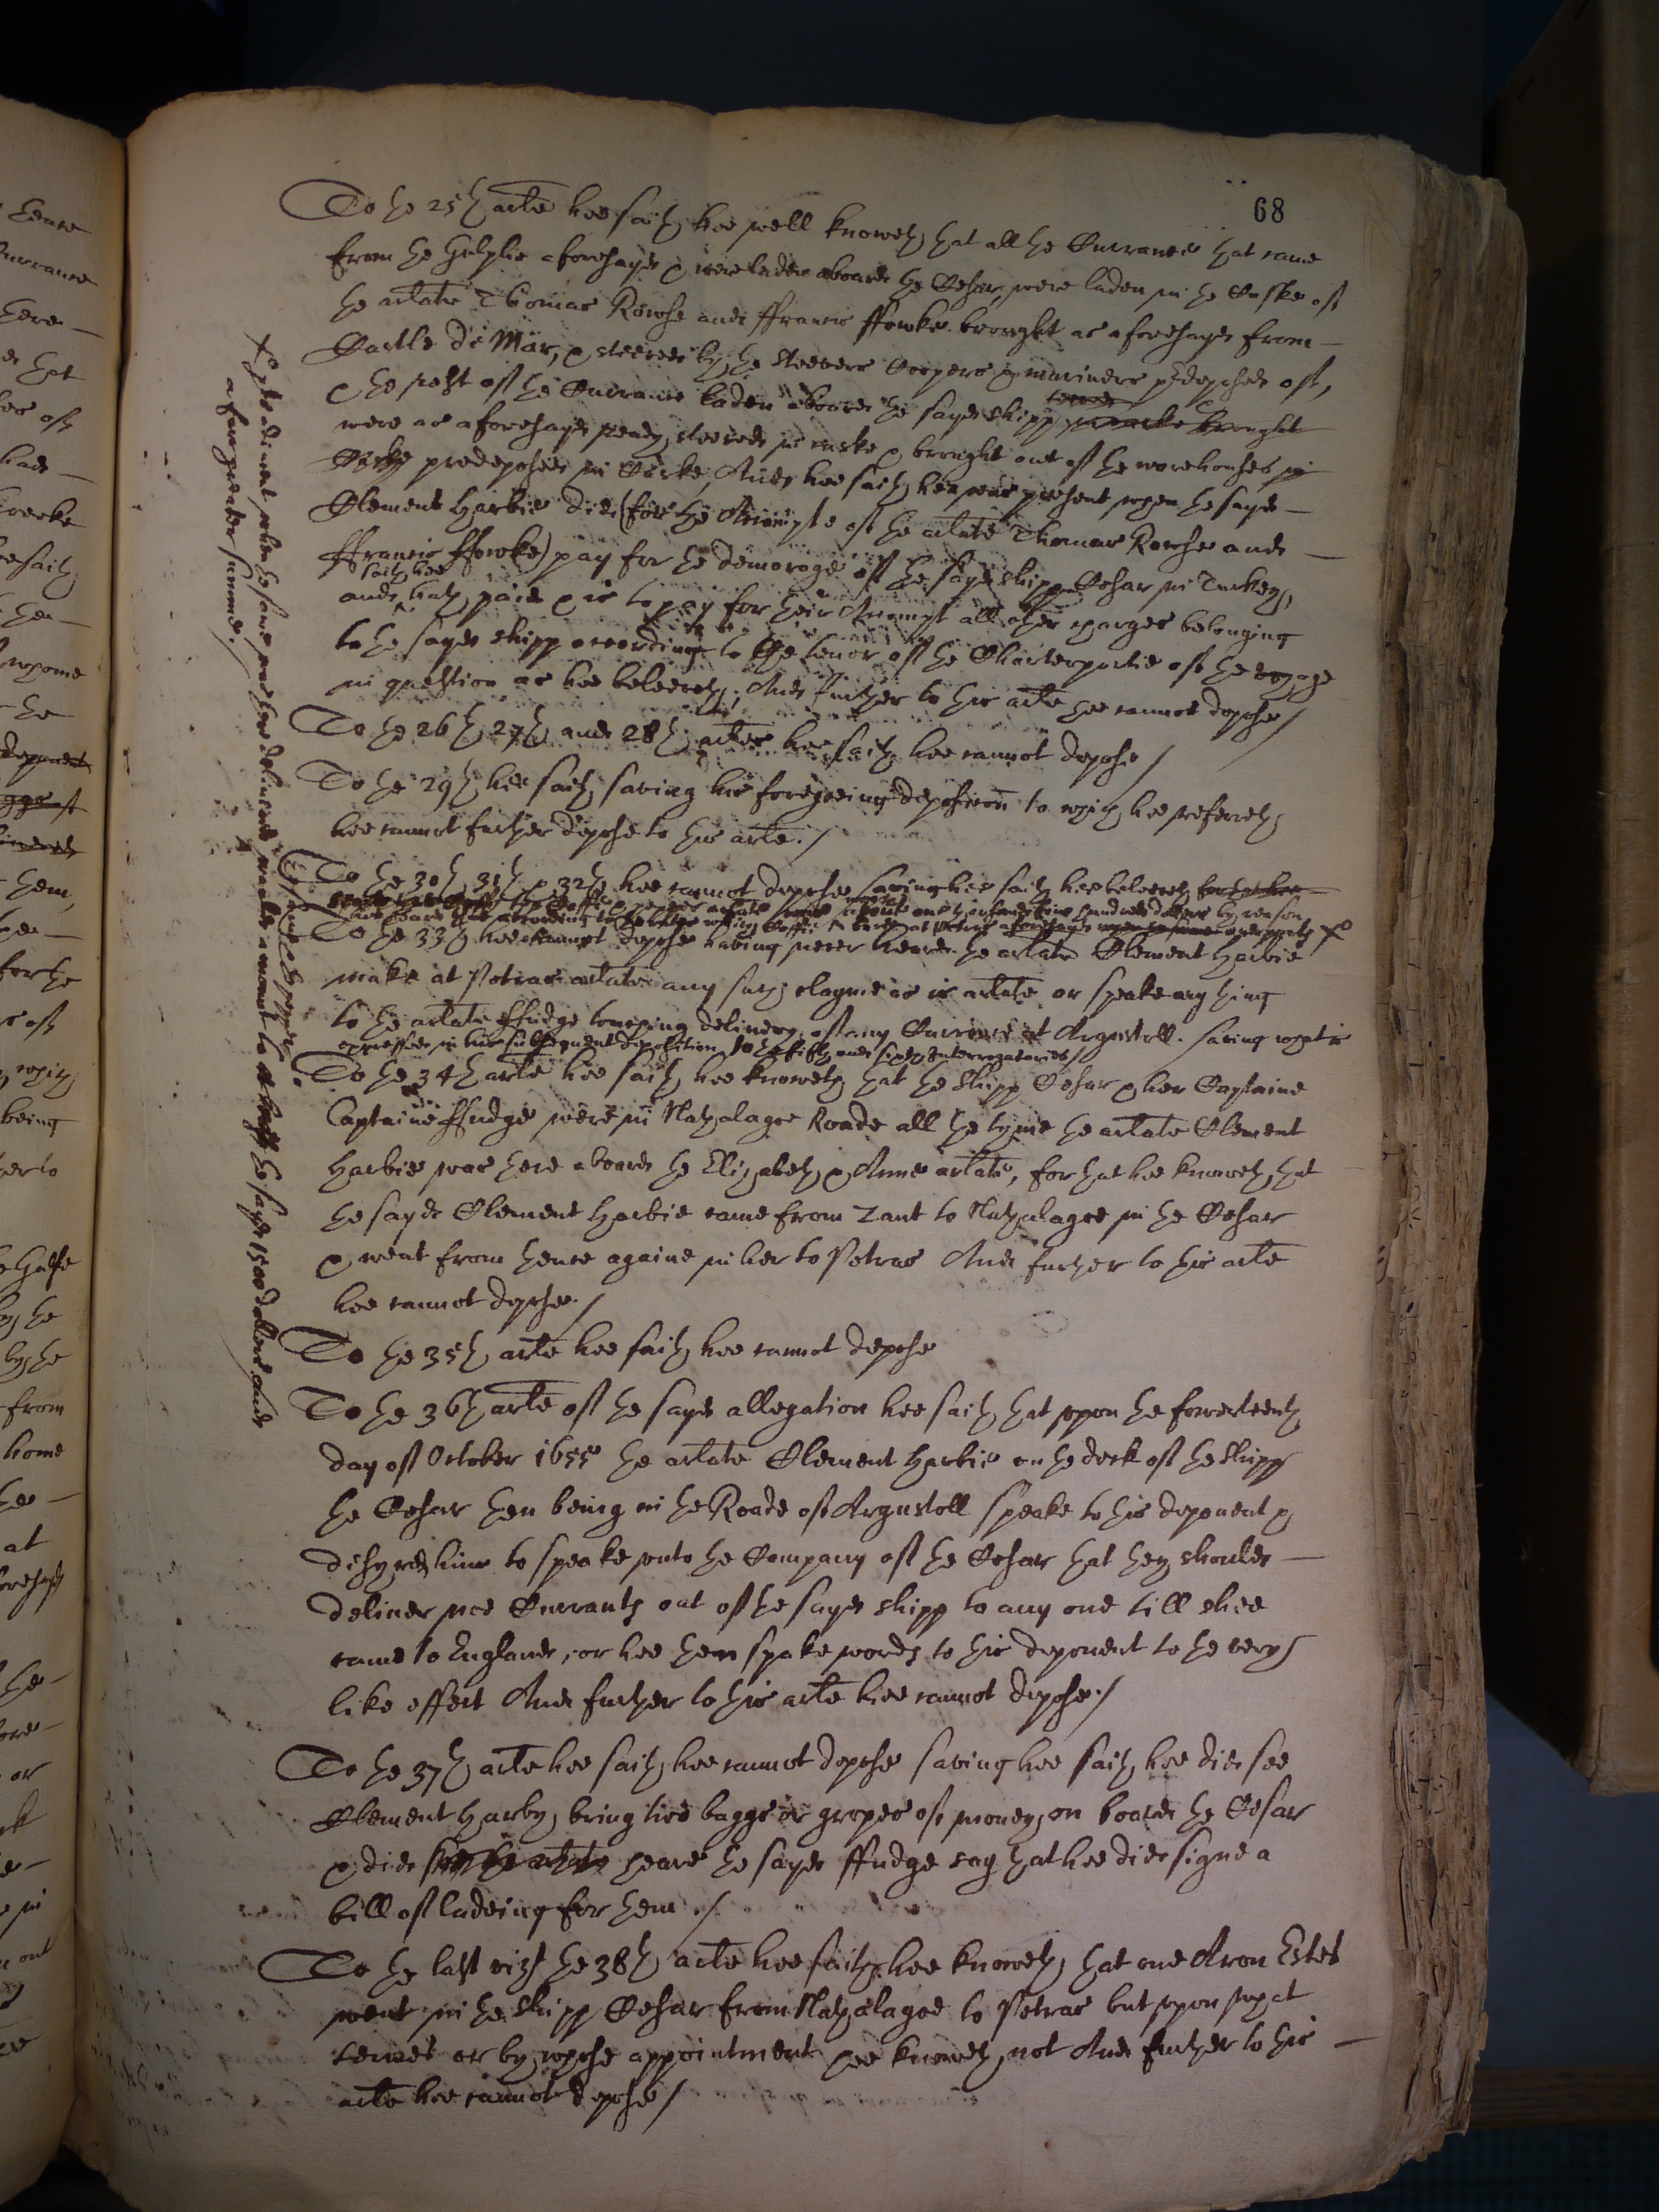 68
To the 25th arte hee saith hee well knoweth that all the Currance that came
from the Gulphe aforesayd & were laden aboard the Cesar, were laden in the Caske of
the arlate Thomas Rowse and ffrancis ffowke brought as aforesayd from
Castle de Mar, & steeved by the steevers Coopers & mariners predeposed of,
& the rest of the Currance laden aboard the sayd shipp
were as aforesayd ready steeved in caske & brought out of the warehouses
predeposed in Caske, And hee saith hee was present when the sayd
Clement Harbie did (for the Accompte of the arlate Thomas Rowse and
ffrancis ffowke) pay for the demorage of the sayd shipp Cesar in Turkey,
saith hee
and hath paid & is to pay for their Accompt all other charges belonging
to the sayd shipp according to the tenor of the Charterpartie of the voyage
in question as hee beleeveth, And further to this arte hee cannot depose/
To the 26th 27th and 28th artes hee saith hee cannot depose/
To the 29th hee saith saving his foregoeing deposition to which hee referreth
hee cannot further depose to this arte./
To the 30th 31th & 32th hee cannot depose saving hee saith hee beleeveth
by reason
To the 33th hee cannot depose having never heard the arlate Clement Harbie
make at Petras arlate any such clayme as is arlate or speake any thing
to the arlate ffudge touching delivery of any Currance at Argustoll. saving what is
expressed in his subsequent deposition to the fifth and sixth Interrogatories/
To the 34th arte hee saith hee knoweth that the shipp Cesar & her Captaine
Captaine ffudge were in Nathalagoe Roade all the tyme the arlate Clement
Harbie was there aboard the Elizabeth & Anne arlate, for that hee knoweth that
the sayd Clement Harbie came from Zant to Nathalagoe in the Cesar
& went from thence againe in her to Petras And further to this arte
hee cannot depose./
To the 35th arte hee saith hee cannot depose
To the 36th arte of the sayd allegation hee saith that upon the fowerteenth
day of October 1655 the arlate Clement Harbie on the deck of the shipp
the Cesar then being in the Roade of Argustoll speake to this deponent &
desyred him to speake unto the Company of the Cesar that they should
deliver noe Currants out of the sayd shipp to any one till shee
came to England, or hee then spake words to this deponent to the very
like effect And further to this arte hee cannot depose./
To the 37th arte hee saith hee cannot depose saving hee saith hee did see
Clement Harby bring two baggs or gropes of money on board the Cesar
& did heare the sayd ffudge say that hee did signe a
bill of ladeing for them ./
To the last vizt the 38th arte hee saith hee knoweth that one Aron Estes
went in the shipp Cesar from Nathalagoe to Petras but upon what
termes or by whose appointment hee knoweth not And further to this
arte hee cannot depose/
the sayd 1500 dollers and
a farr greater summe./